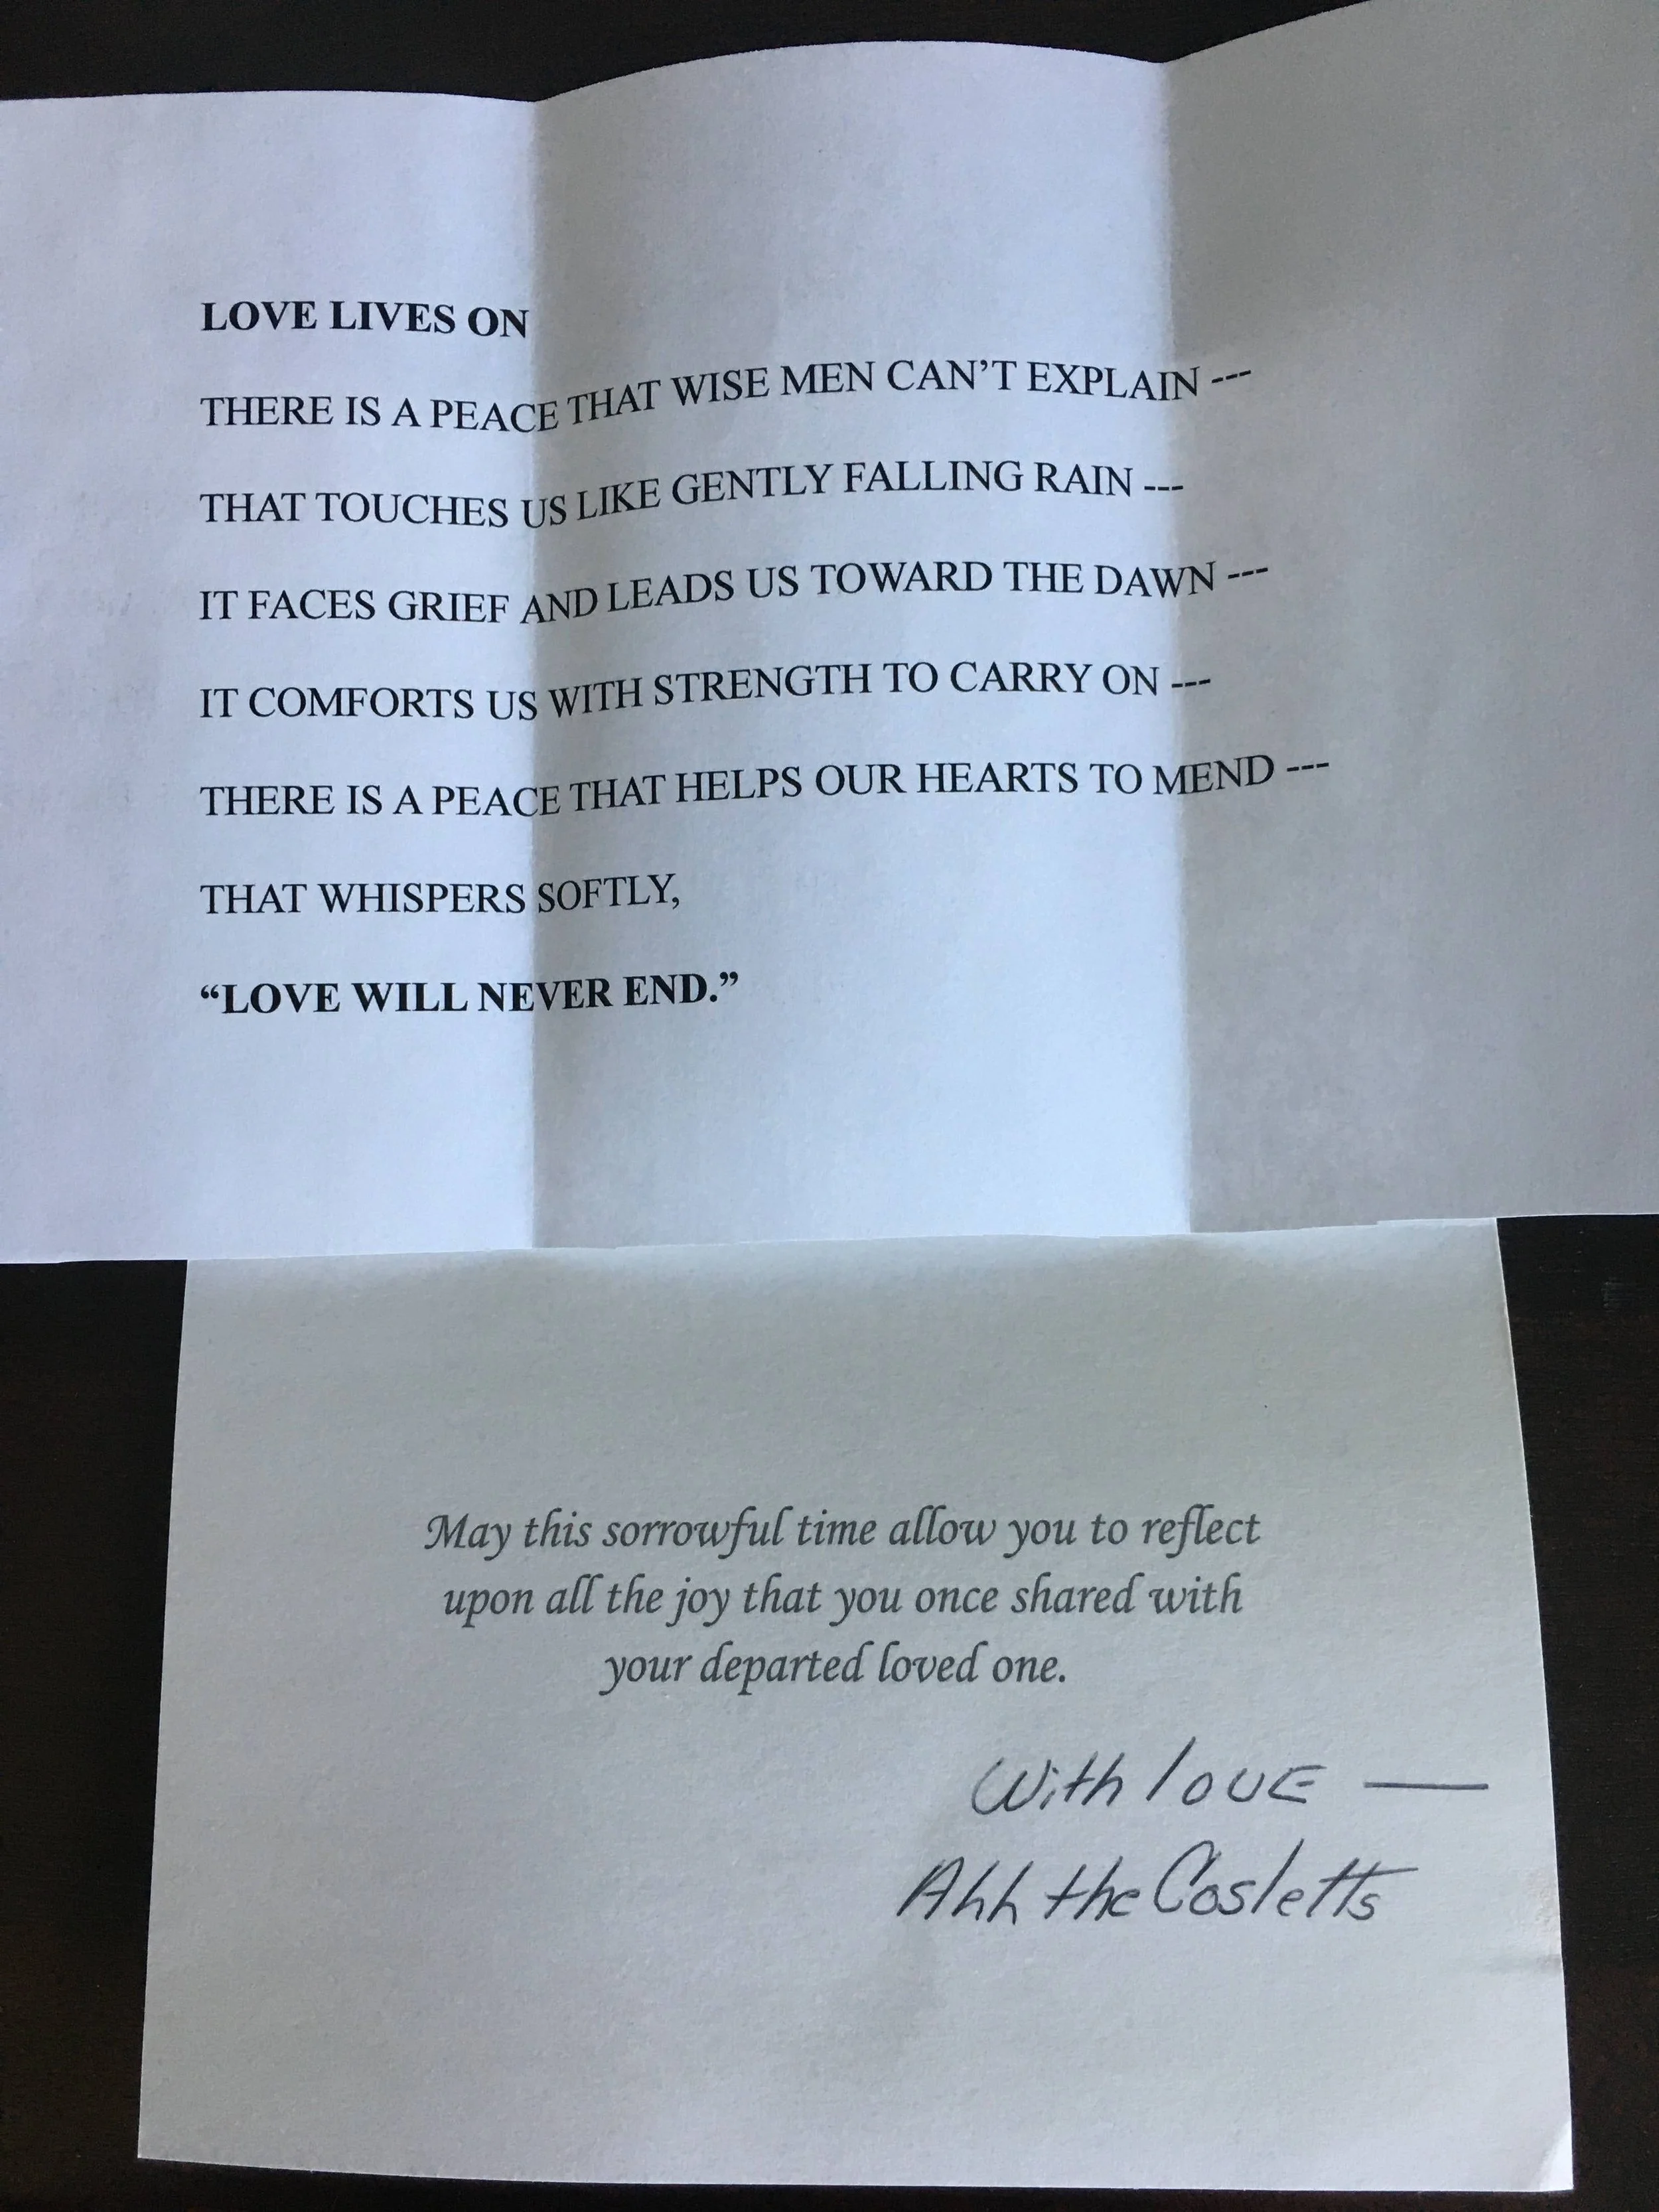 LOVE LIVES ON
THERE IS A PEACE THAT WISE MEN CAN’T EXPLAIN ---
THAT TOUCHES US LIKE GENTLY FALLING RAIN ---
IT FACES GRIEF AND LEADS US TOWARD THE DAWN ---
IT COMFORTS US WITH STRENGTH TO CARRY ON ---
THERE IS A PEACE THAT HELPS OUR HEARTS TO MEND ---
THAT WHISPERS SOFTLY,
“LOVE WILL NEVER END.”
May this sorrowful time allow you to reflect
upon all the joy that you once shared with
your departed loved one.
With love —
Ahh the Cosletts